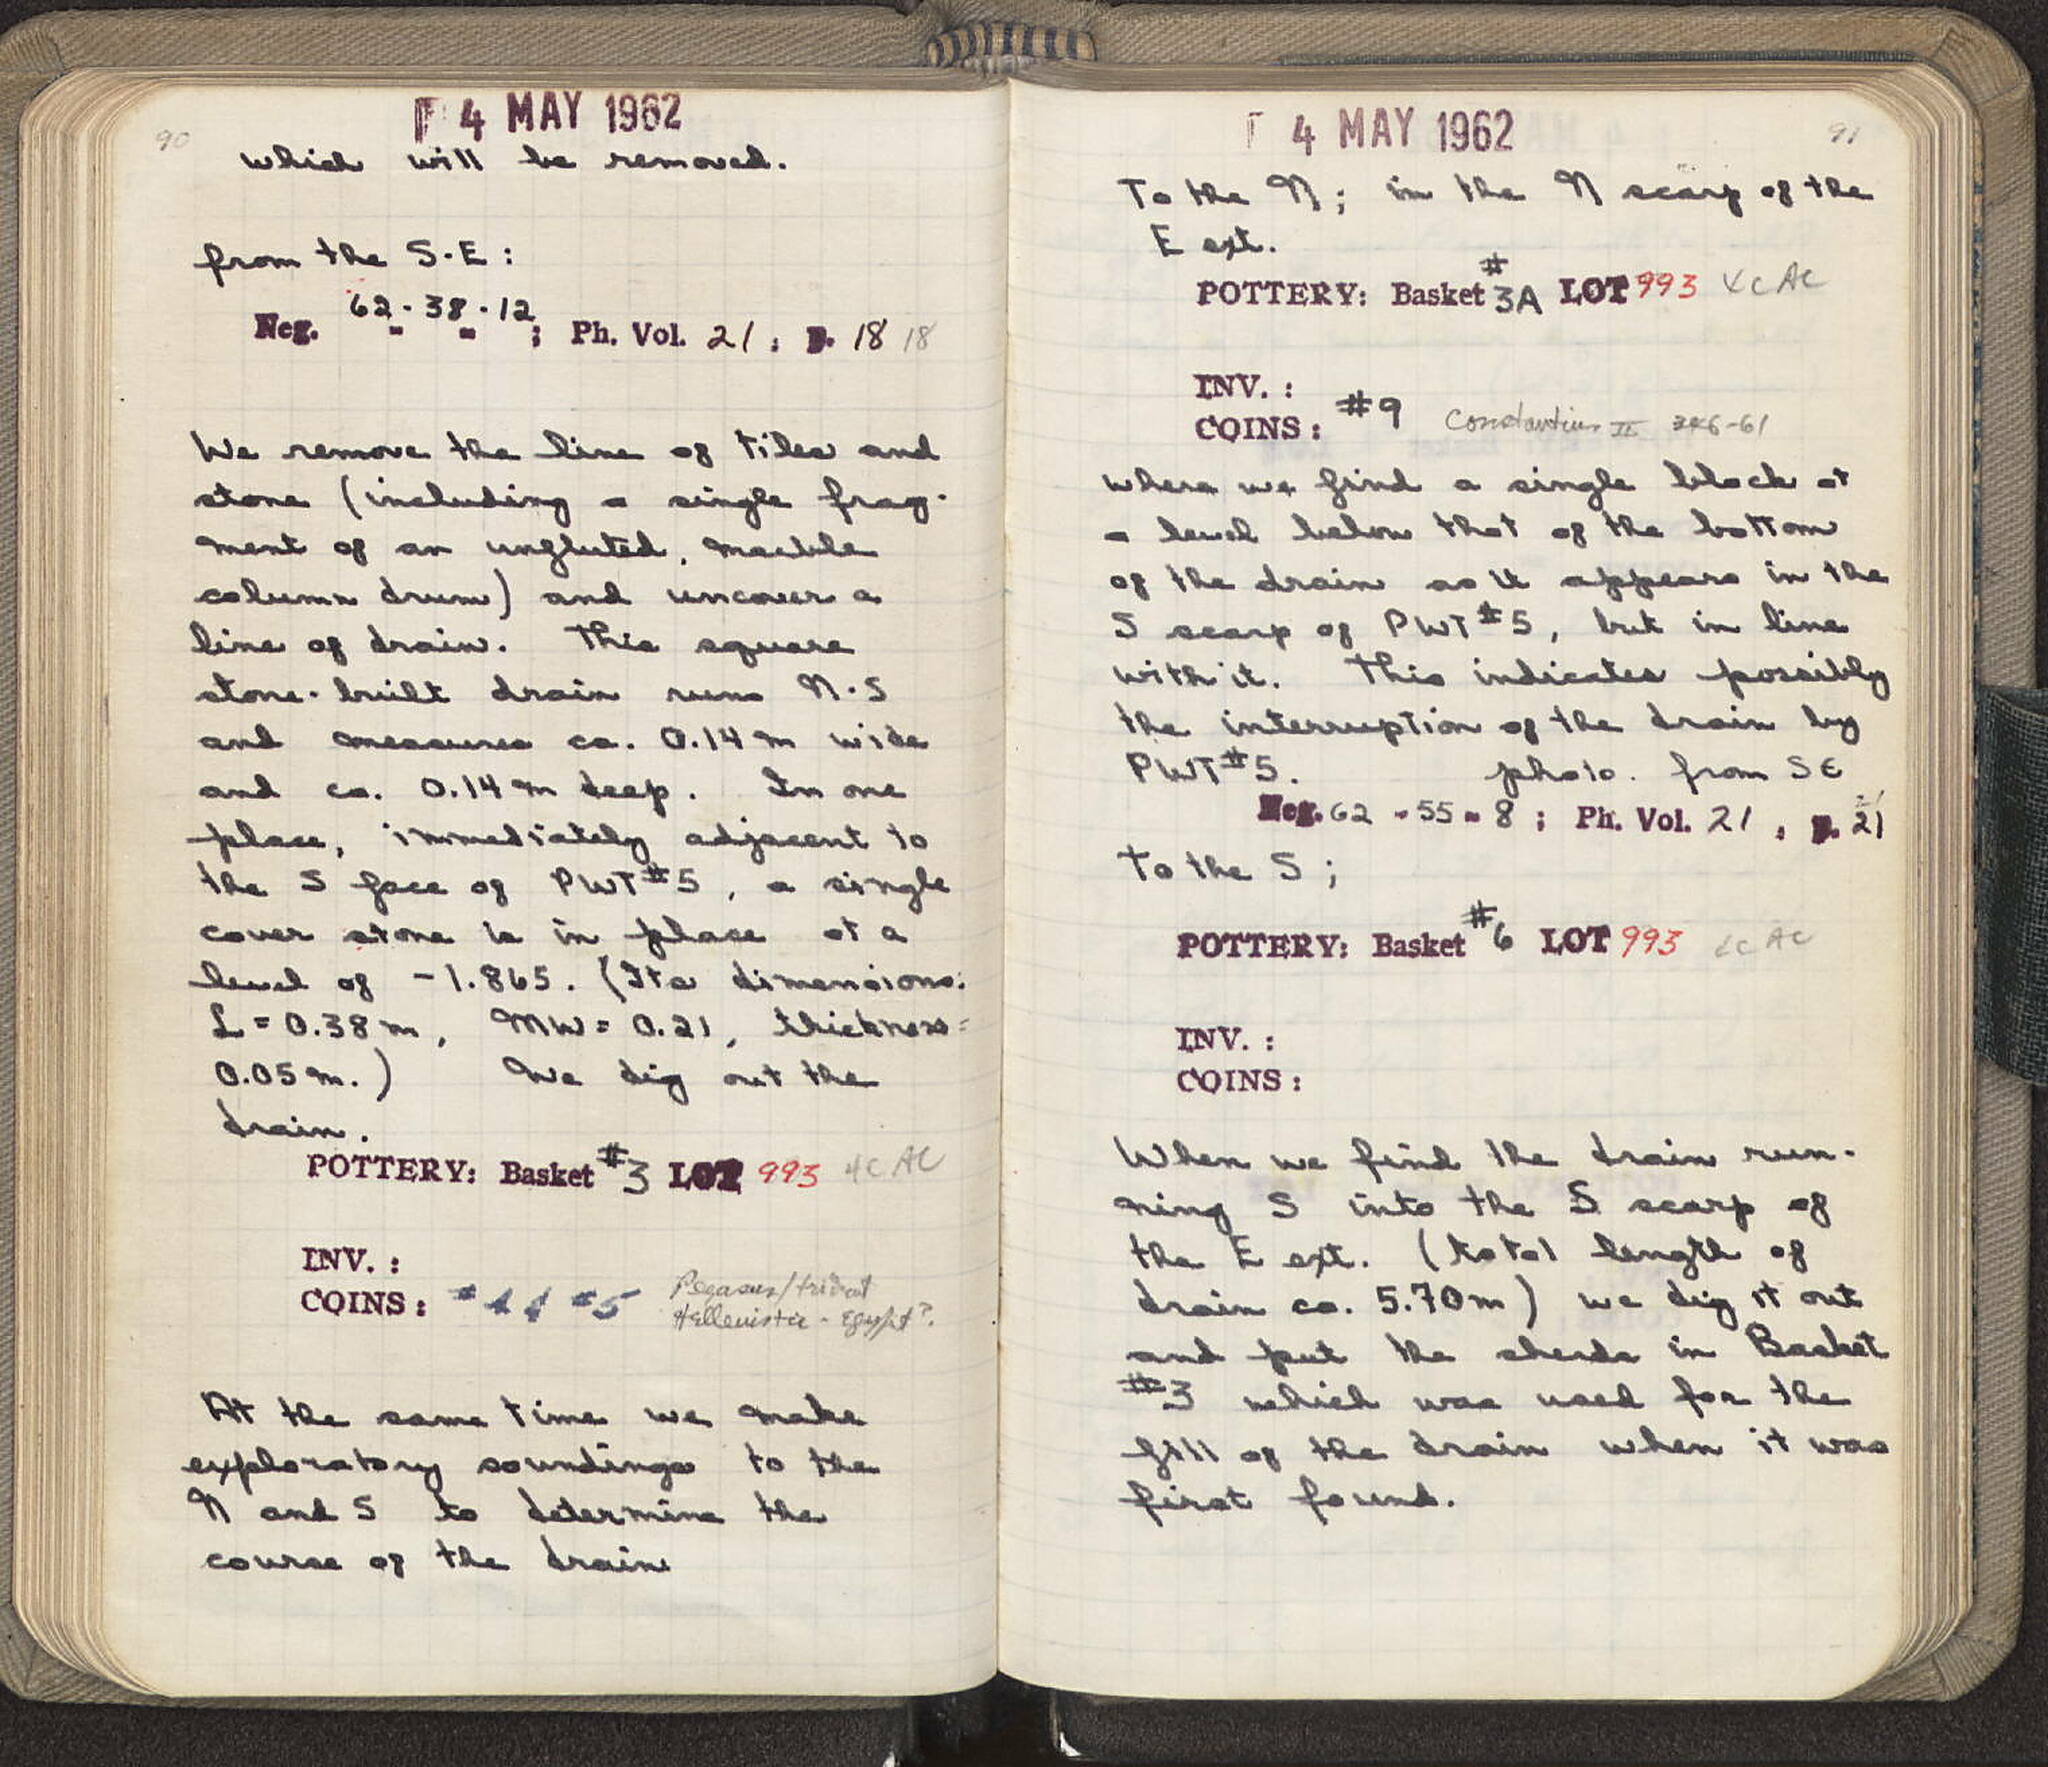 90
4 MAY 1962
which will be removed.
from the S-E:
Neg. 62-38-12; Ph. Vol. 21, p. 18 18
We remove the line of tiles and
stone (including a single frag-
ment of an unfluted, marble
column drum) and uncover a
line of drain. This square
stone-built drain runs N-S
and measures ca. 0.14 m wide
and ca. 0.14 m deep. In one
place, immediately adjacent to
the S face of PWT #5, a single
cover stone is in place at a
level of -1.865. (Its dimensions:
L = 0.38 m, MW = 0.21, thickness =
0.05 m.) We dig out the
drain.
POTTERY: Basket #3 LOT 993 4c AC
INV.:
COINS: #5 Pegasus/trident
Hellenistic - Egypt?.
At the same time we make
exploratory soundings to the
N and S to determine the
course of the drain
91
4 MAY 1962
To the N; in the N scarp of the
E ext.
POTTERY: Basket #3A LOT 993 4c AC
INV.:
COINS: #9 Constantius II 346-61
where we find a single block at
a level below that of the bottom
of the drain as it appears in the
S scarp of PWT #5, but in line
with it. This indicates possibly
the interruption of the drain by
PWT #5. photo. from SE
Neg. 62-55-8; Ph. Vol. 21, p. 21
To the S;
POTTERY: Basket #6 LOT 993 4c AC
INV.:
COINS:
When we find the drain run-
ning S into the S scarp of
the E ext. (total length of
drain ca. 5.70 m) we dig it out
and put the sherds in Basket
#3 which was used for the
fill of the drain when it was
first found.